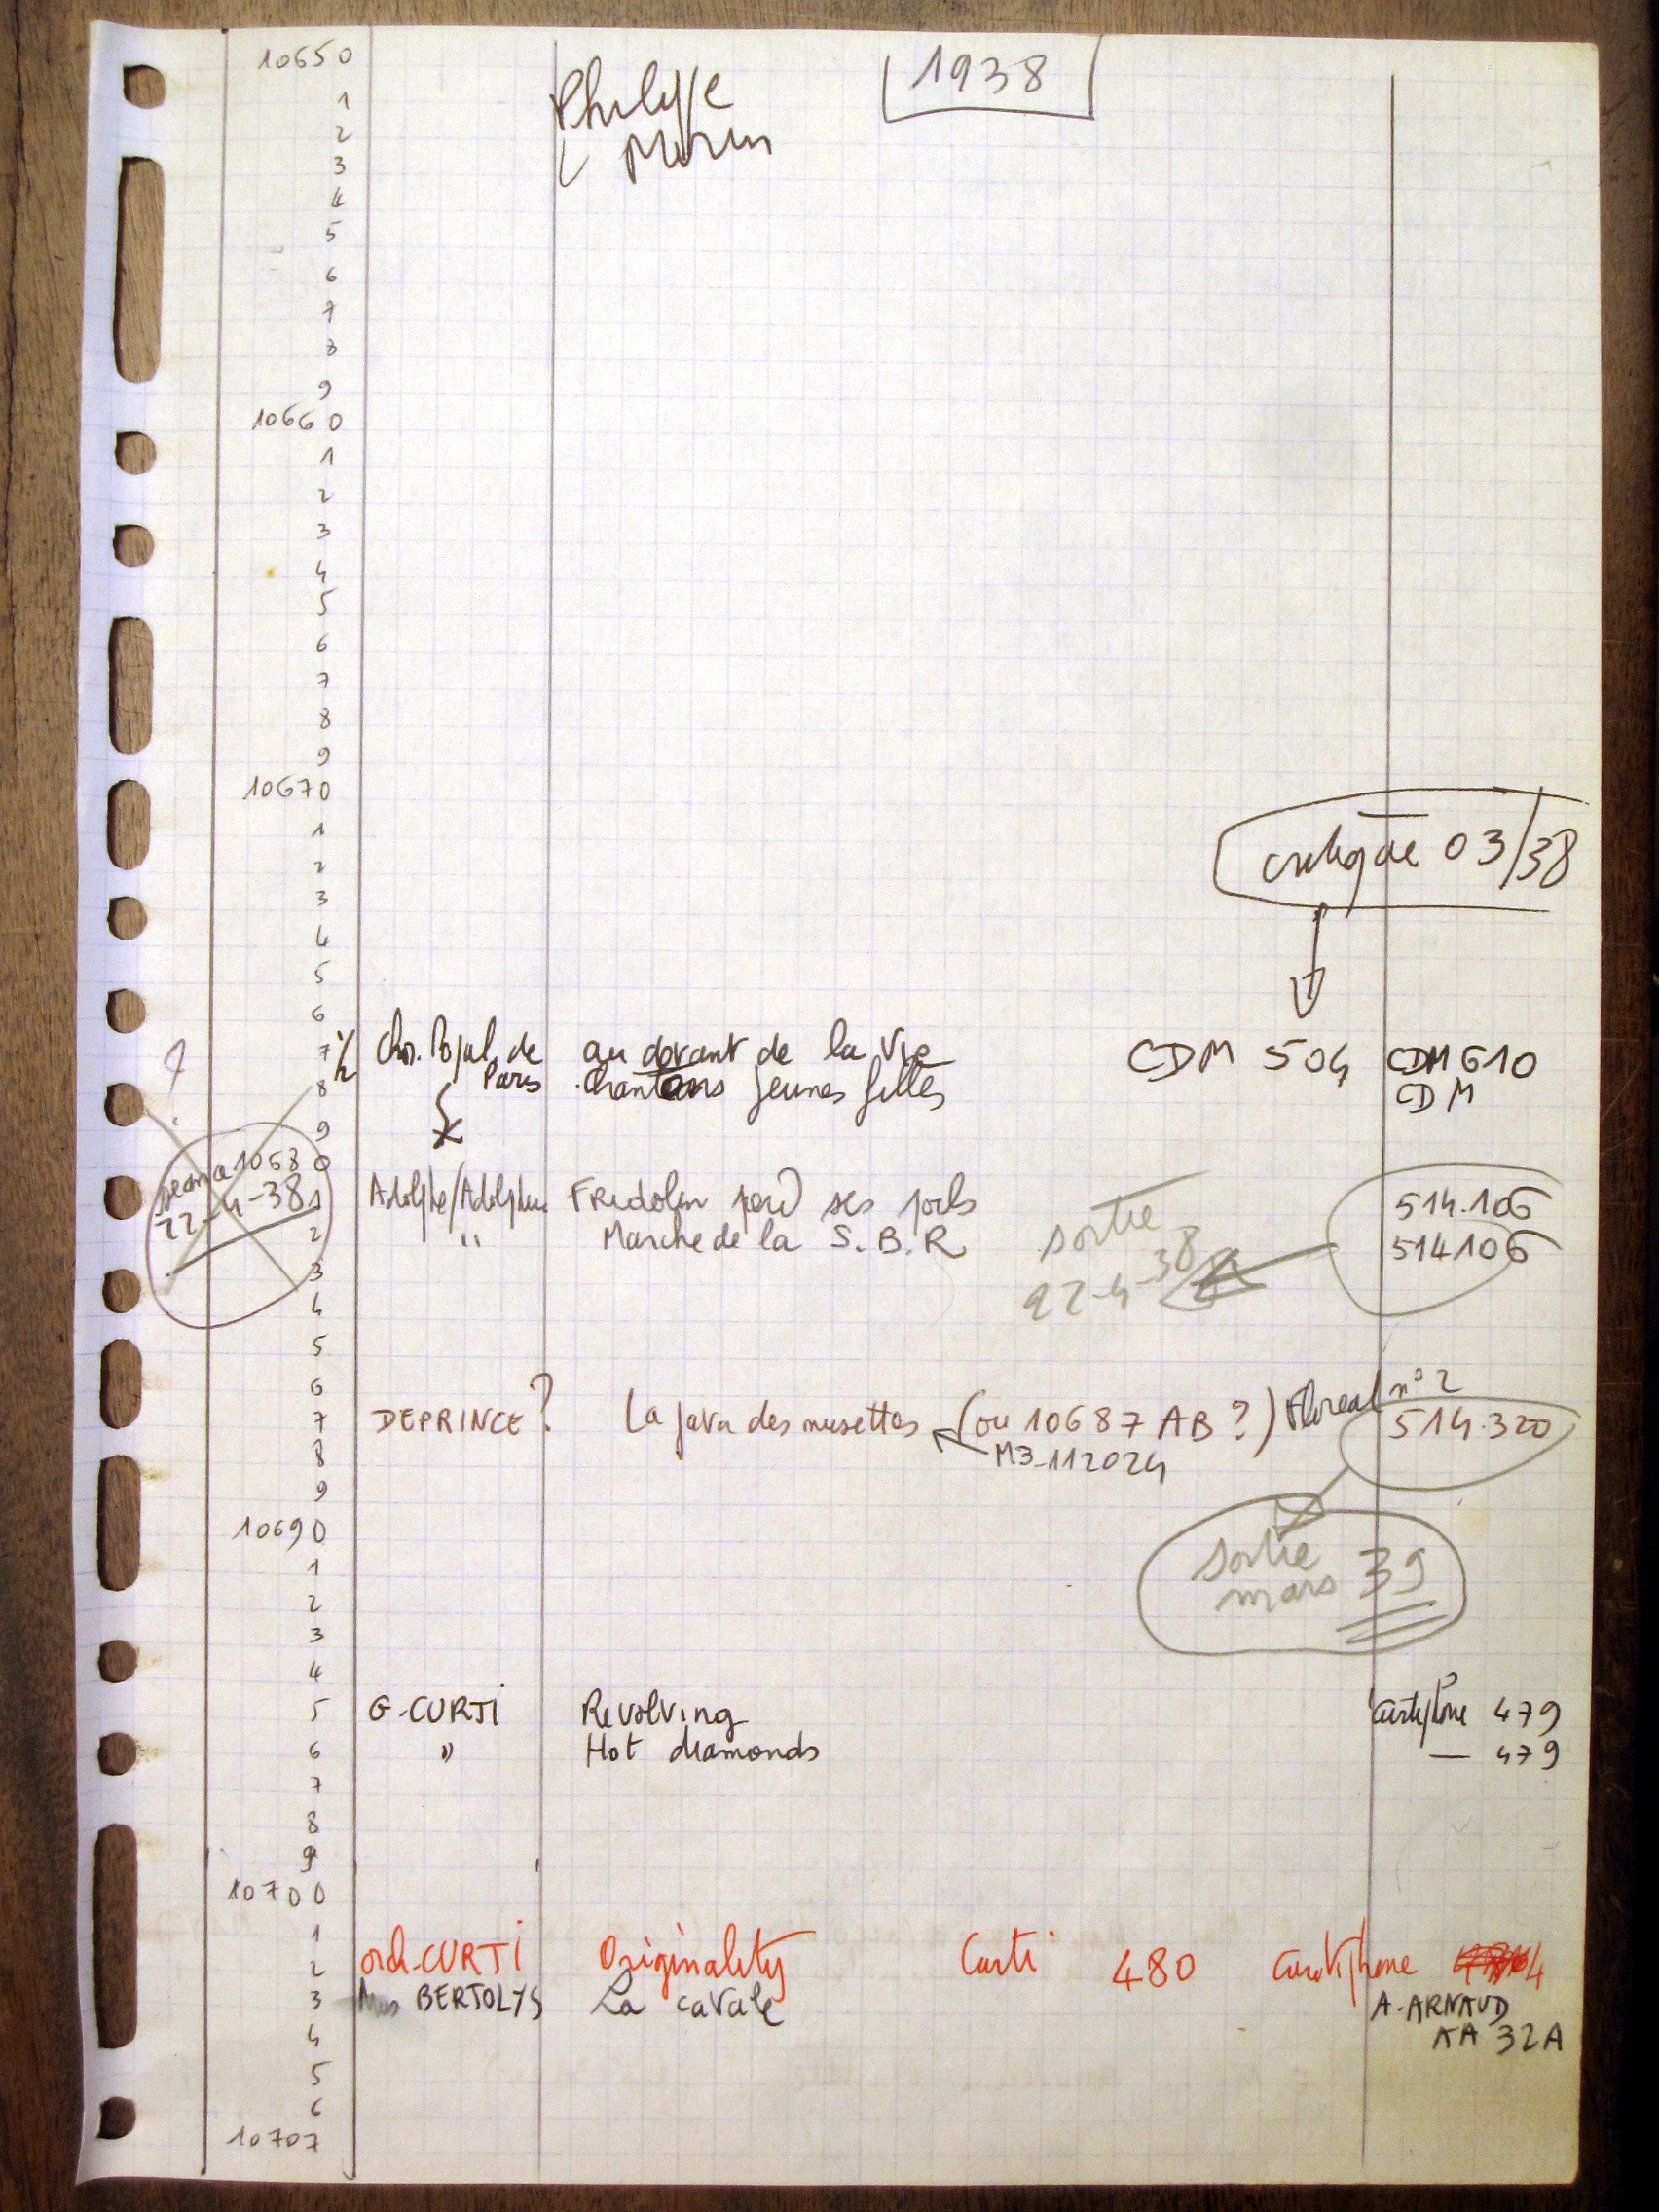 10650
1938
1
Philippe
2
Morin
3
4
5
6
7
8
9
10660
1
2
3
4
5
6
7
8
9
10670
1
critique 03/38
2
3
4
5
6
7 Chor. Popul. de au devant de la vie CDM 504 CDM 610
8 Paris Chantons jeunes filles CDM
9
10680
22-4-38
1 Adolphe/Adolphe Fridolin perd ses poils 514.106
2 " Marche de la S.B.R 514106
sortie
22-4-38
3
4
5
6
7 DEPRINCE? La java des musettes (ou 10687 AB?) Floreal n° 2 514.320
M3-112024
8
9
10690
sortie
mars 39
1
2
3
4
5 G. CURTI Revolving Curtiphone 479
6 " Hot diamonds — 479
7
8
9
10700
1
2 orch. CURTI Originality Curti 480 Curtiphone
3 Mus BERTOLYS La cavale A. ARNAUD
AA 32A
4
5
6
10707